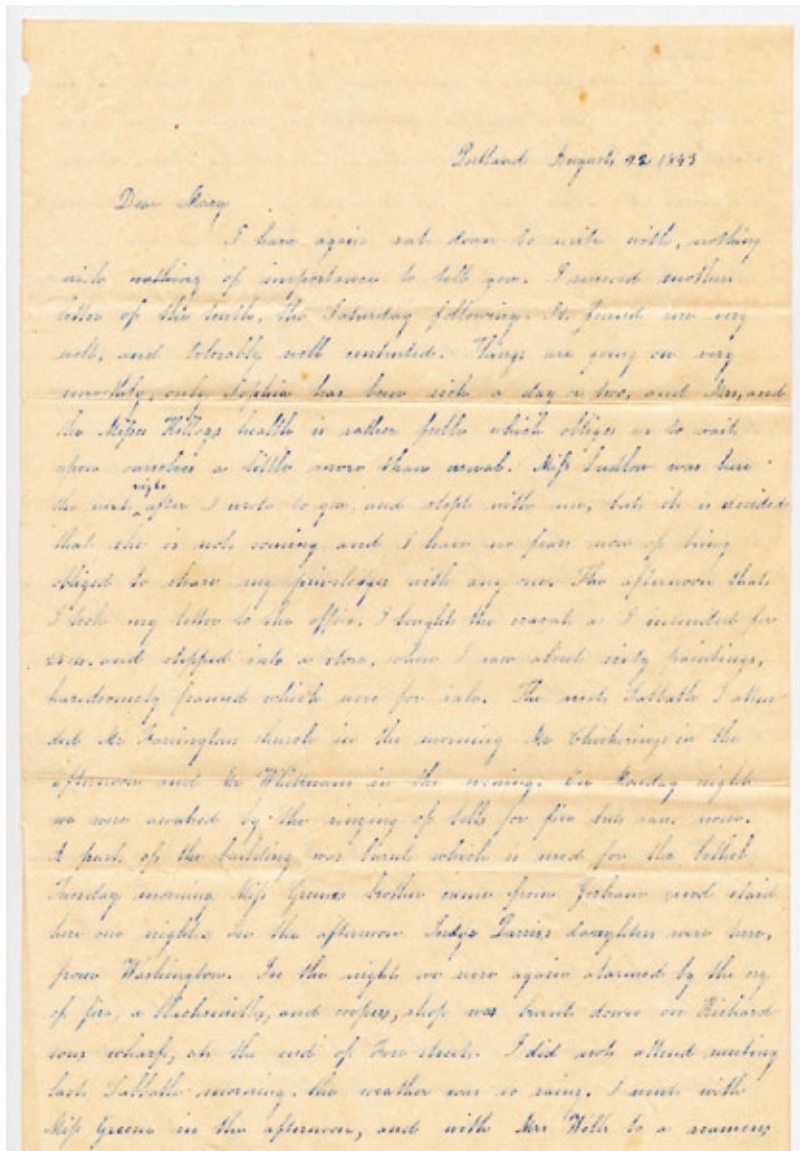 Portland August 22 1843
Dear Mary
I have again sat down to write with, nothing
with nothing of importance to tell you. I received mothers
letter of the tenth, the Saturday following. It found me very
well, and tolerably well contented. Things are going on very
smoothly, only Sophia has been sick a day or two, and Mrs, and
the Misses Kelloggs health is rather feeble which obliges us to wait
upon ourselves a little more than usual. Miss Ludlow was here
the next night after I wrote to you, and slept with me, but it is decided
that she is not coming, and I have no fears now of being
obliged to share my priviledges with any one. The afternoon that
I took my letter to the office, I bought the cravat as I intended for
and stepped into a store, where I saw about sixty paintings,
handsomely framed which were for sale. The next Sabbath I atten
ded Mr church in the morning Mr Chickerings in the
afternoon and Mr Whitmans in the evening. On Monday night
we were awaked by the ringing of bells for fire but saw none.
A part of the building was burnt which is used for the bethel
Tuesday morning Miss Greens brother came from Gorham and staid
here one night. In the afternoon Judge Parris daughters were here,
from Washington. In the night we were again alarmed by the cry
of fire, a blacksmiths, and coopers, shop was burnt down on Richard
sons wharf, at the end of street. I did not attend meeting
last Sabbath morning, the weather was so rainy. I went with
Miss Greene in the afternoon, and with Mrs Wells to a seamens